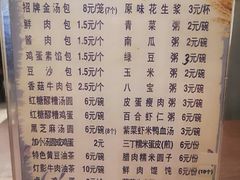 招牌金汤包 8元/笼(7个) 原味花生浆 3元/杯
鲜肉包 1.5元/个 青菜粥 2元/碗
酱肉包 1.5元/个 南瓜粥 2元/碗
鸡蛋素馅包 1.5元/个 绿豆粥 3元/碗
豆沙包 1.5元/个 玉米粥 2元/碗
香菇牛肉包 2元/个 八宝粥 3元/碗
红糖醪糟汤圆 6元/碗 皮蛋瘦肉粥 3元/碗
红糖醪糟鸡蛋 6元/碗 百合虾仁粥 3元/碗
黑芝麻汤圆 6元/碗(8个) 紫菜虾米鸭血汤 3元/碗
加小汤圆或鸡蛋 2元 三丁糯米蛋皮(煎) 2元/个
特色黄豆油茶 6元/碗 腊肉糯米圆子 6元/份
灯影牛肉油茶 10元/碗 鲜肉馄饨 6元/份(10个)